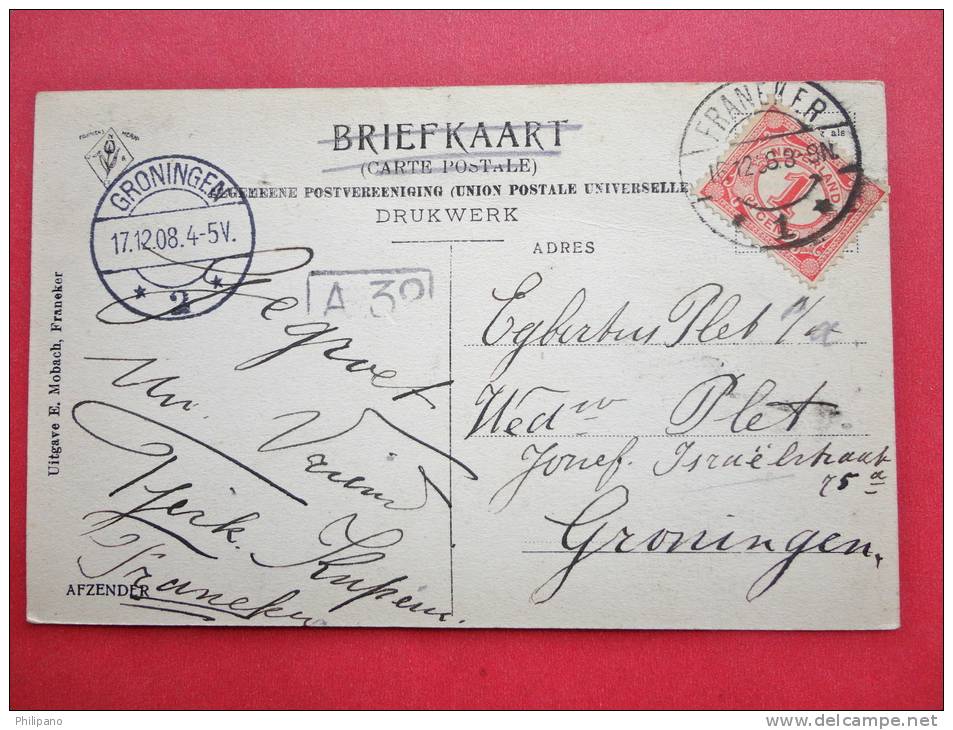 BRIEFKAART
(CARTE POSTALE)
ALGEMEENE POSTVEREENIGING (UNION POSTALE UNIVERSELLE
DRUKWERK
ADRES
FRANEKER
8-9N.
1
NEDERLAND
1
CENT
GRONINGEN
17.12.08.4-5V.
2
A 39
Uitgave E. Mobach, Franeker
Gegroet
Uw Vriend
Tjerk.
Franeker
AFZENDER
Egbertus Plet
Wed Plet
Jozef. Israëlstraat
75 a
Groningen.
Philipano
www.delcampe.net